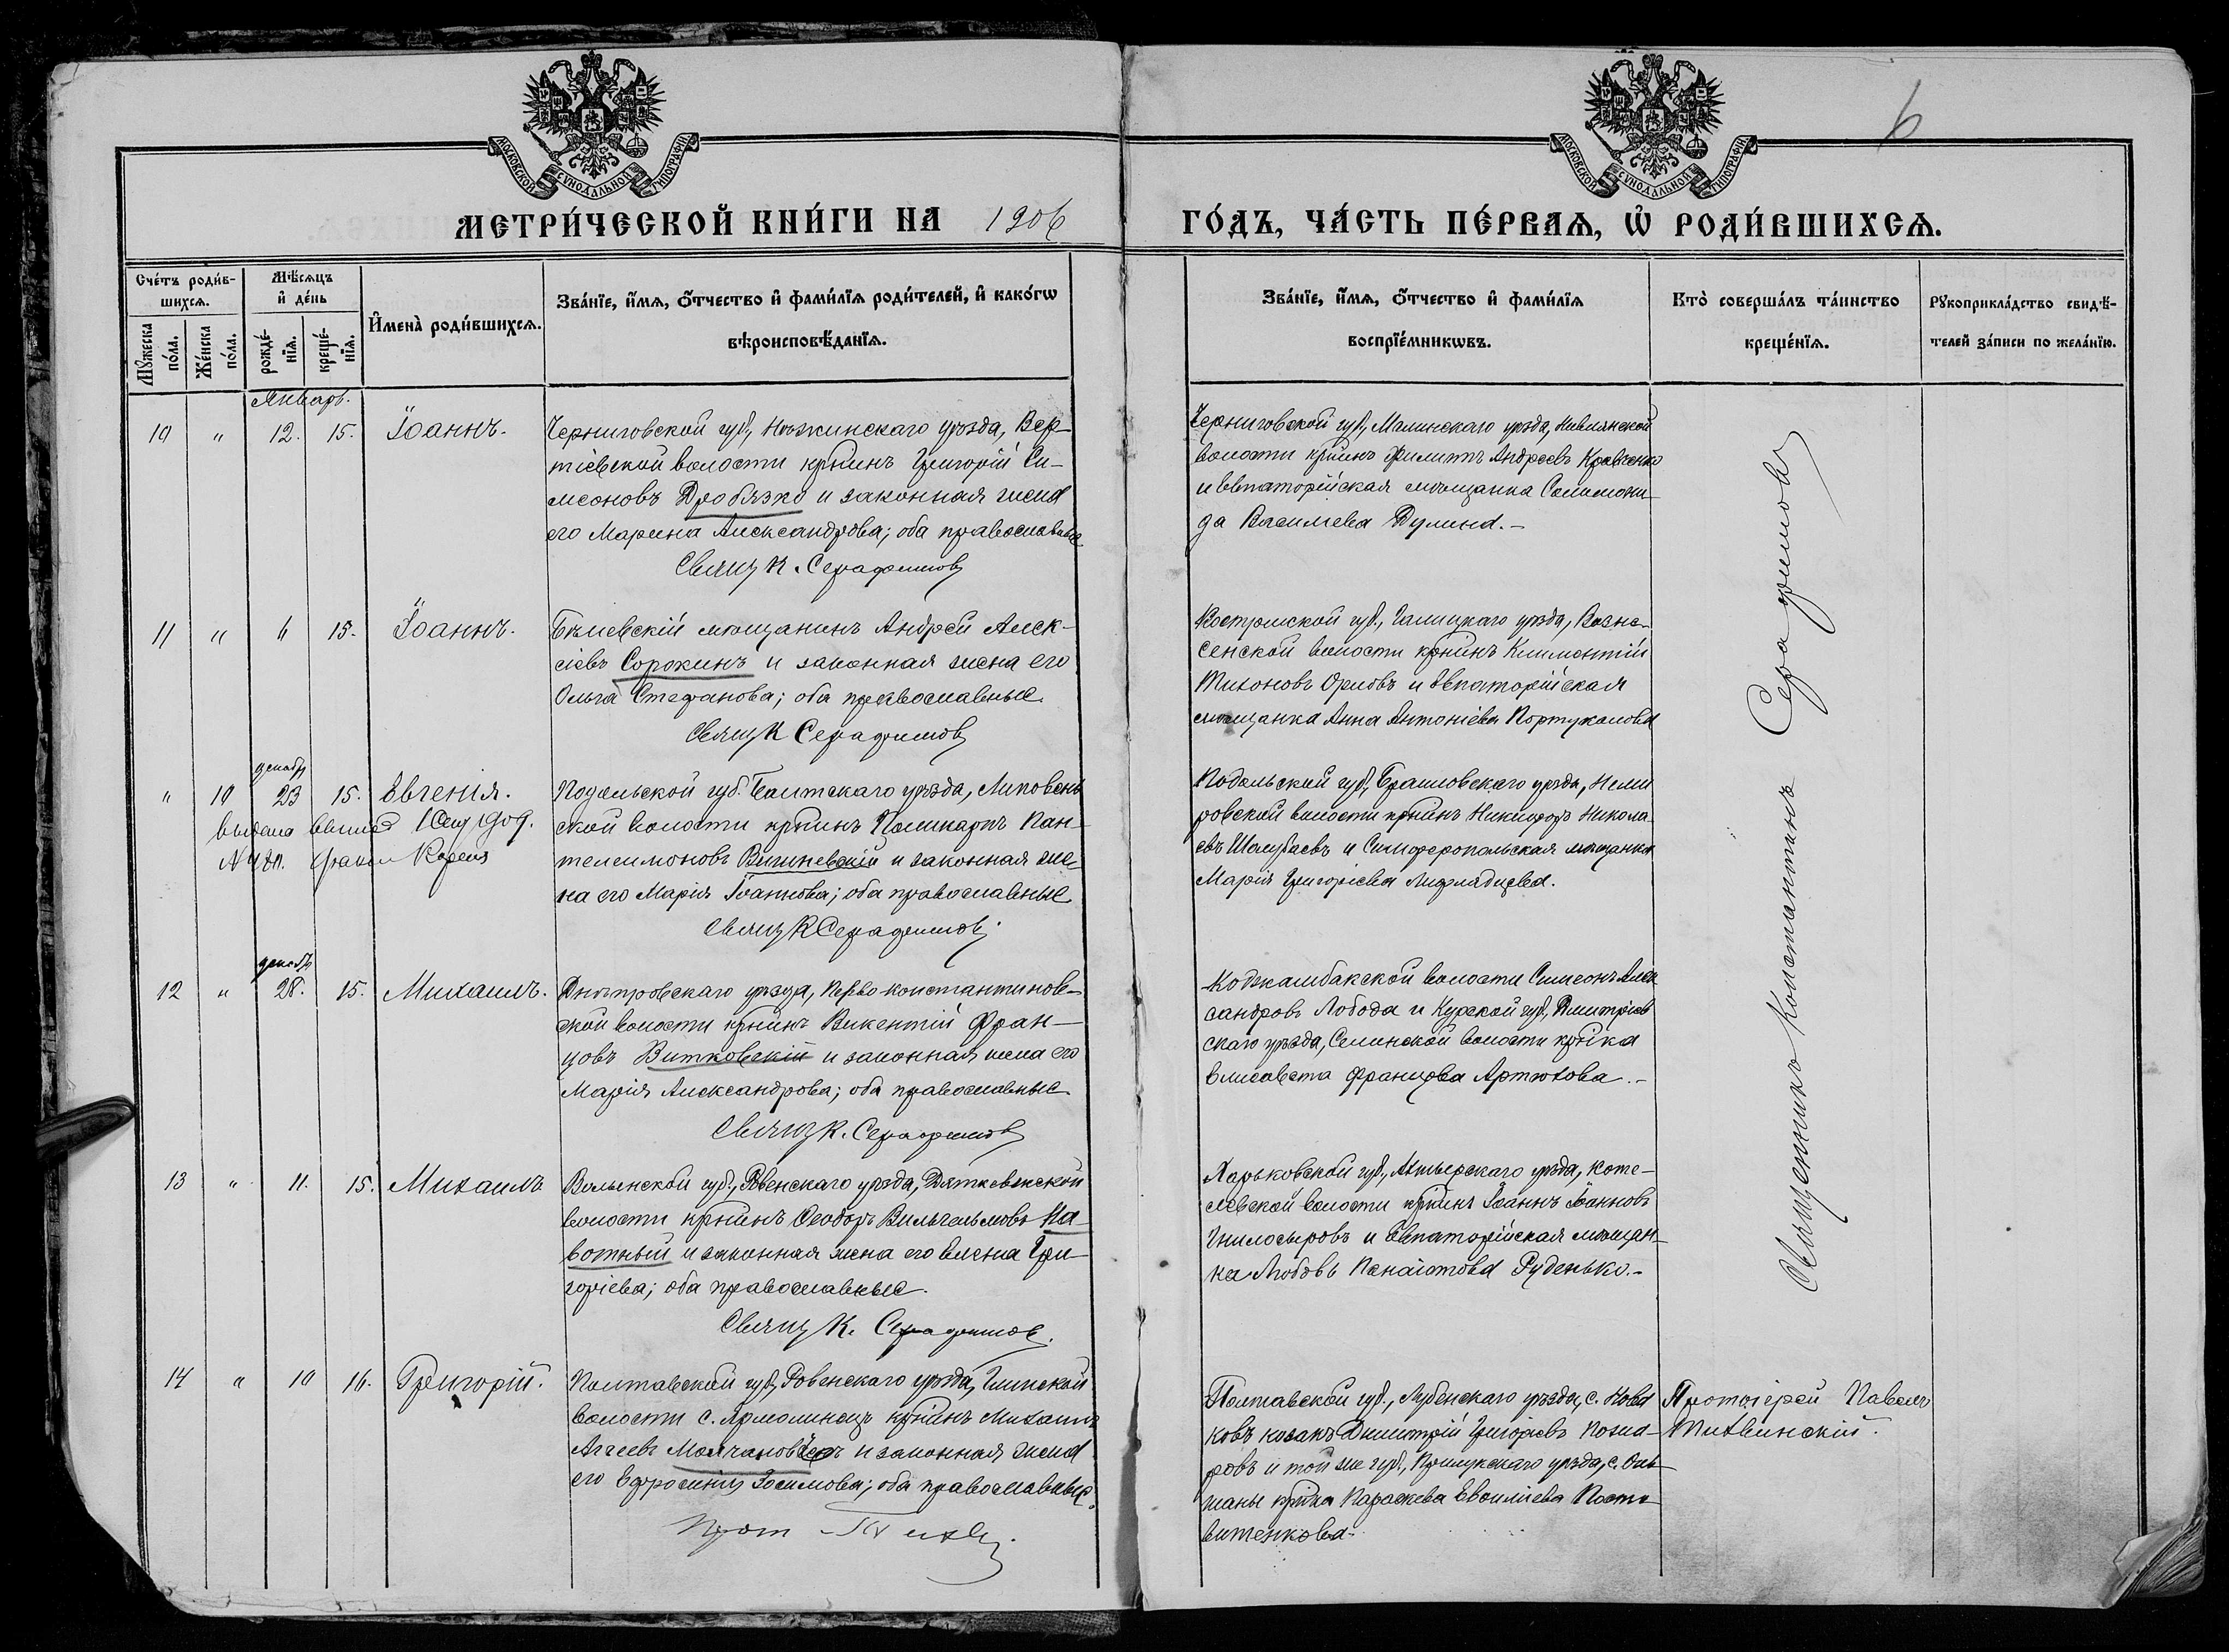 6
МОСКОВСКОЙ СѴНОДАЛЬНОЙ ТИПОГРАФІИ
МОСКОВСКОЙ СѴНОДАЛЬНОЙ ТИПОГРАФІИ
МЕТРИ́ЧЕСКОЙ КНИ́ГИ НА 1906 ГО́ДЪ, ЧА́СТЬ ПЕ́РВАѦ, Ѡ҆ РОДИ́ВШИХСѦ.
Сче́тъ роди́в-
шихсѧ.
Мꙋ́жеска по́ла.
Же́нска по́ла.
Мѣ́сѧцъ и҆ де́нь
рожде́-нїѧ.
креще́-нїѧ.
И҆мена̀ роди́вшихсѧ.
Зва́нїе, и҆́мѧ, ѻ҆́тчество и҆ фами́лїѧ роди́телей, и҆ како́гѡ
вѣроисповѣ́данїѧ.
Зва́нїе, и҆́мѧ, ѻ҆́тчество и҆ фами́лїѧ
воспрїе́мникѡвъ.
Кто̀ соверша́лъ та́инство
креще́нїѧ.
Рꙋкоприкла́дство свидѣ́-
телей за́писи по жела́нїю.
Январь.
10 " 12. 15. Іоаннъ.
Черниговской губ., Нѣжинскаго уѣзда, Вер-
тіевской волости кр̃нинъ Григорій Си-
меоновъ Дробязко и законная жена
его Марина Александрова; оба православные
Свящ К. Серафимовъ
Черниговской губ., Мглинскаго уѣзда, Нивлянской
волости кр̃нинъ Филиппъ Андреевъ Кравченко
и евпаторійская мѣщанка Соломони-
да Васильева Дулина.-
11 " 6 15. Іоаннъ.
Бѣлевскій мѣщанинъ Андрей Алек-
сіевъ Сорокинъ и законная жена его
Ольга Стефанова; оба православные.
Свящ К Серафимовъ
Костромской губ., Галицкаго уѣзда, Возне-
сенской волости кр̃нинъ Климентій
Тихоновъ Орловъ и евпаторійская
мѣщанка Анна Антоніева Портукалова
декабр
" 10 23 15. Евгенія.
выдана 1909.
Подольской губ. Балтскаго уѣзда, Липовень
ской волости кр̃нинъ Поликарпъ Пан-
телеимоновъ Вишневскій и законная же-
на его Марія Іоаннова; оба православные.
Свящ К Серафимовъ
Подольской губ., Брацловскаго уѣзда, Неми
ровской волости кр̃нинъ Никифоръ Никола
евъ и Симферопольская мѣщанка
Марія Григоріева
декабр
12 " 28. 15. Михаилъ.
Днѣпровскаго уѣзда, Перво-константинов-
ской волости кр̃нинъ Викентій Фран-
цовъ Витковскій и законная жена его
Марія Александрова; оба православные.
Свящ К. Серафимовъ
Коджамбакской волости Симеонъ Алек
сандровъ Лобода и Курской губ., Дмитріев
скаго уѣзда, Селинской волости кр̃нка
Елисавета Францова Артюхова.-
13 " 11. 15. Михаилъ
Волынской губ., Ровенскаго уѣзда, Дятковвской
волости кр̃нинъ Ѳеодоръ Вильгельмовъ На-
вотный и законная жена его Елена Гри-
горіева; оба православные.
Свящ К. Серафимов.
Харьковской губ., Ахтырскаго уѣзда, Коте-
левской волости кр̃нинъ Іоаннъ Іоанновъ
Гнилосыровъ и Евпаторійская мѣщан-
ка Любовь Панаіотова Руденько.-
Священникъ Константинъ Серафимовъ
14 " 10 16. Григорій.
Полтавской губ., Ровенскаго уѣзда, Глинской
волости с. Ярмолинецъ кр̃нинъ Михаилъ
Аггеевъ и законная жена
его Ефросинія Зосимова; оба православные.
Прот Тихв
Полтавской губ., Лубенскаго уѣзда, с. Нова
ковъ козакъ Димитрій Григоріевъ
ровъ и той же губ., Прилукскаго уѣзда, с. Оль-
шаны кр̃нка Параскева
витенкова.
Протоіерей Павелъ
Тихвинскій.